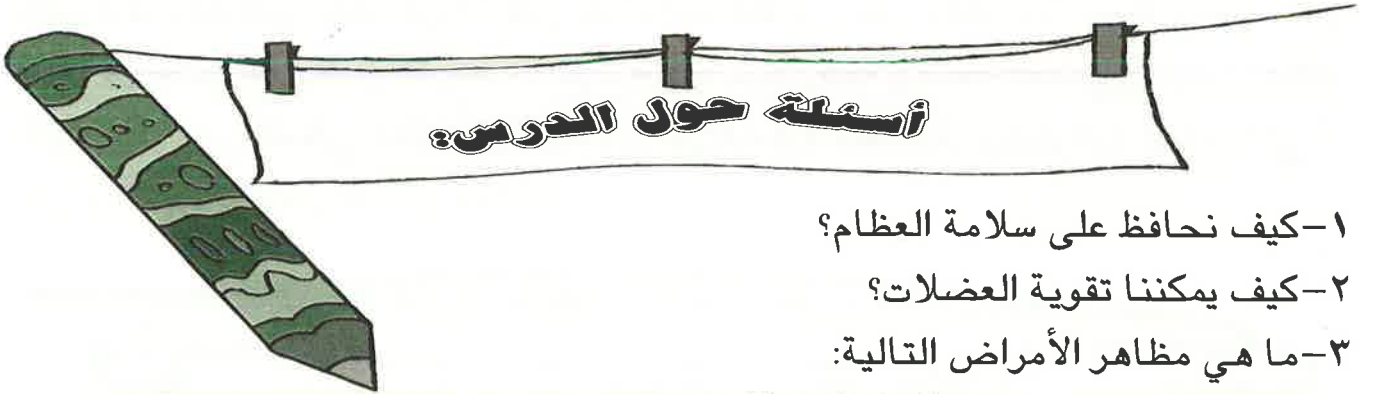 أسئلة حول الدرس:
١-كيف نحافظ على سلامة العظام؟
٢-كيف يمكننا تقوية العضلات؟
٣-ما هي مظاهر الأمراض التالية: